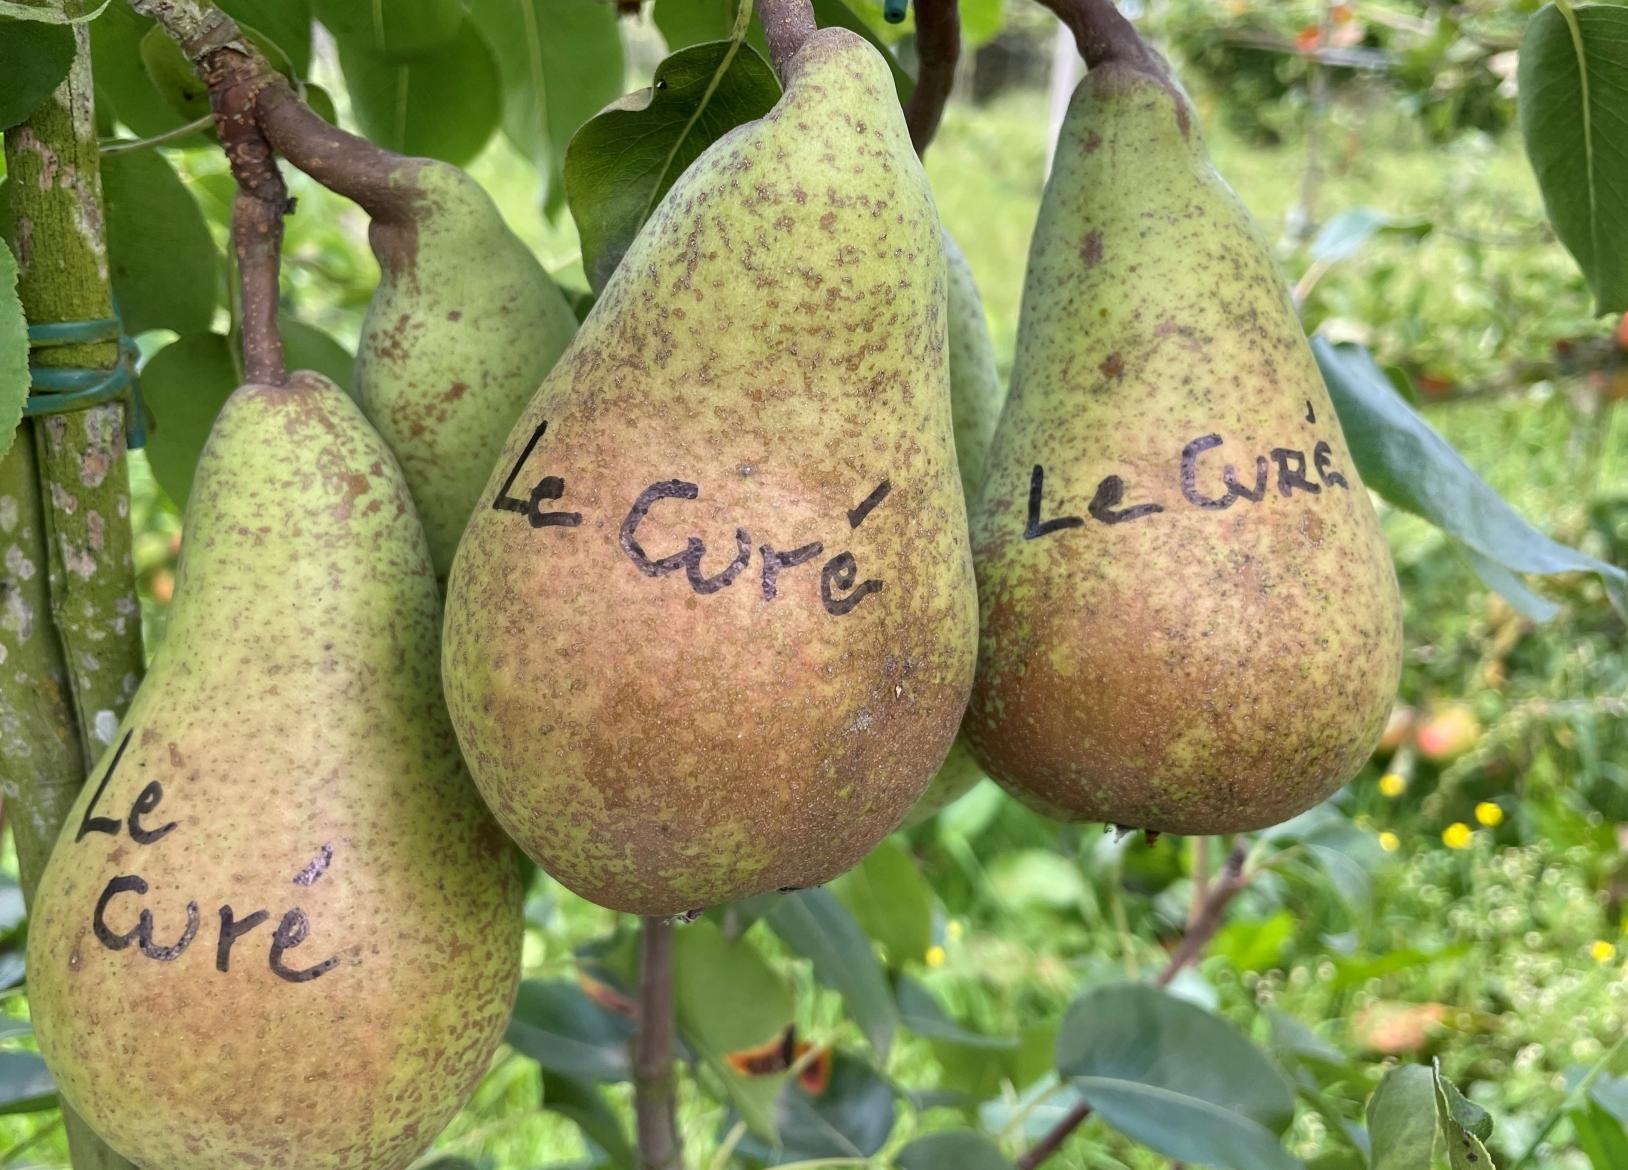 Le
Curé
Le Curé
Le CURÉ